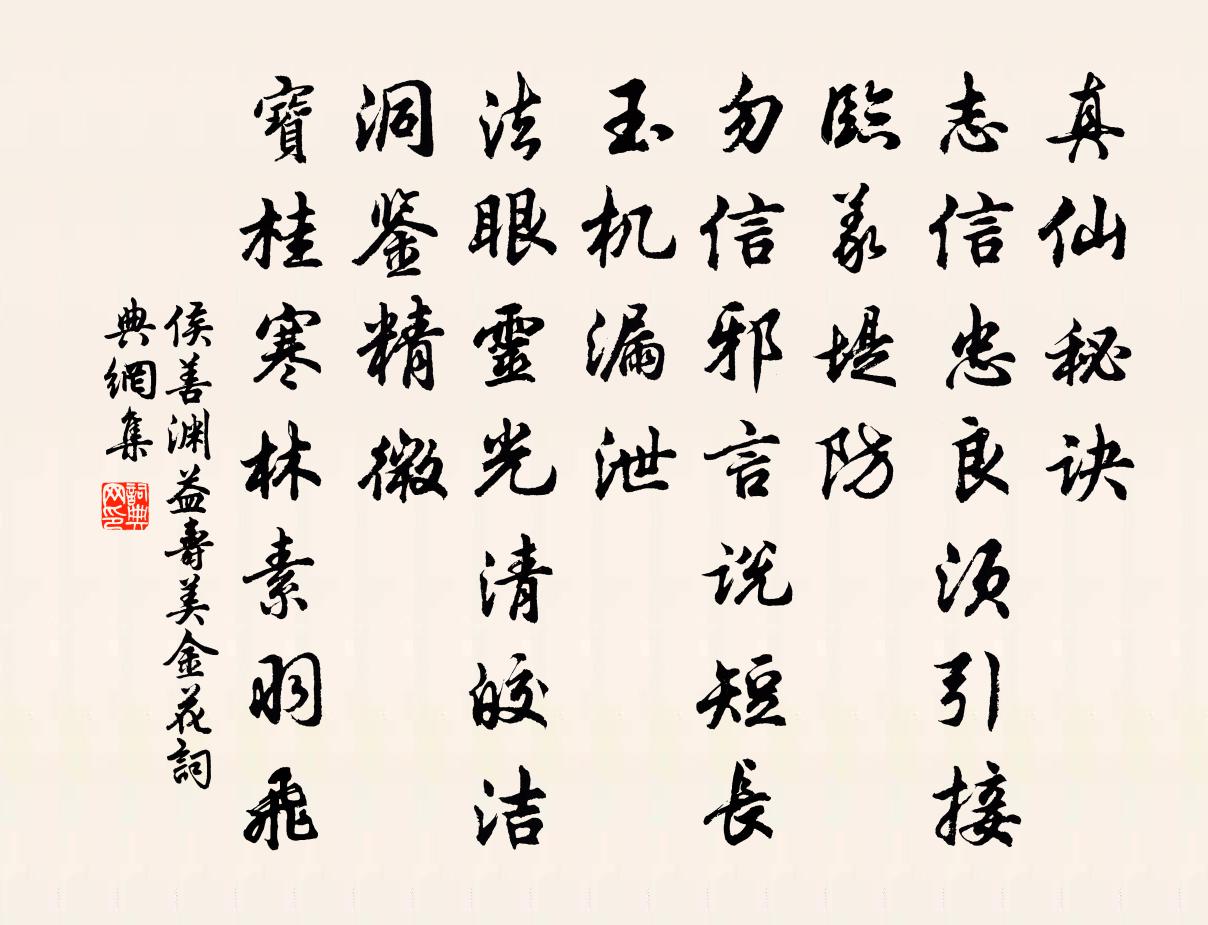 真仙秘诀
志信忠良须引接
臨義堤防
勿信邪言说短長
玉机漏泄
法眼靈光清皎洁
洞鉴精微
寶桂寒林素羽飛
侯善渊益壽美金花詞
典網集
詞典
网印